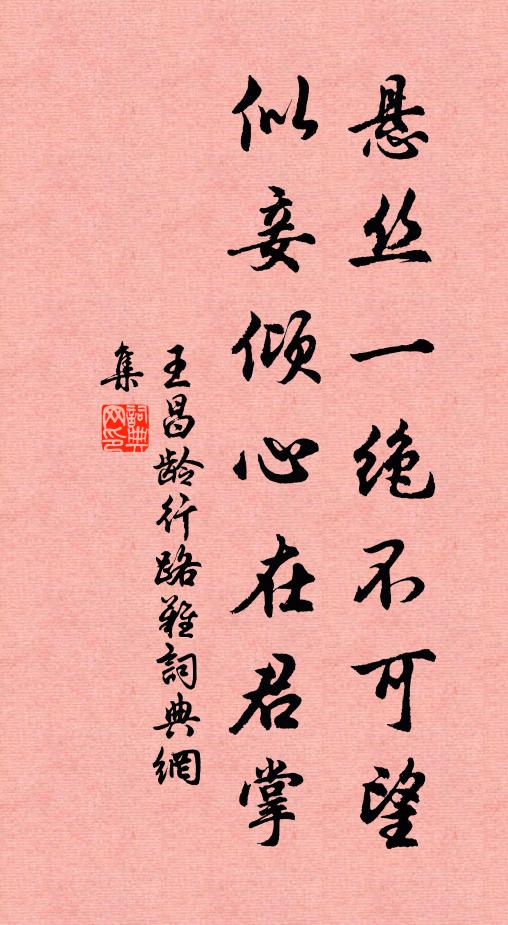 悬丝一绝不可望
似妾倾心在君掌
王昌龄行路难詞典網
集
詞典網印